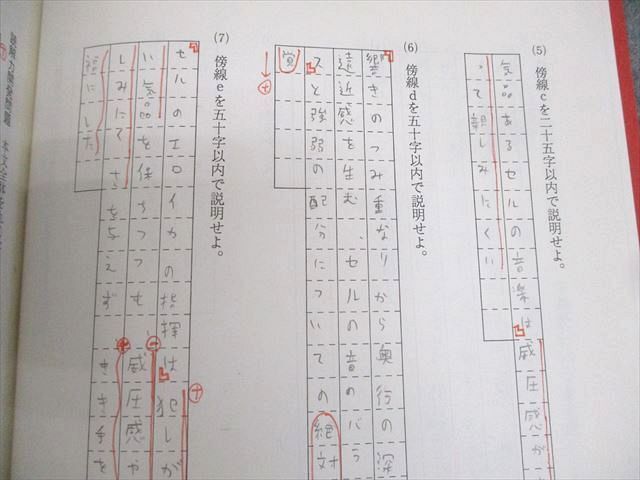 (5) 傍線cを二十五字以内で説明せよ。
気品あるセルの音楽は威圧感が
って親しみにくい
(6) 傍線dを五十字以内で説明せよ。
響きのつみ重なりから奥行の深
遠近感を生む、セルの音のバラ
スと強弱の配分についての絶対
覚
(7) 傍線eを五十字以内で説明せよ。
セルのエロイカの指揮は犯しが
い気品を保ちつつも威圧感や
しみにてさを与えず、きき手を
にした
読解力問題 本文全体を